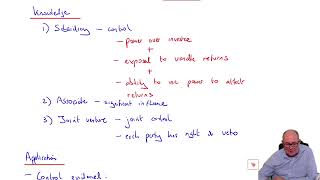 Knowledge
1) Subsidiary - control
- power over investee
+
- exposed to variable returns
+
- ability to use power to affect
returns
2) Associate - significant influence
3) Joint venture - joint control
- each party has right to veto
Application
- Control